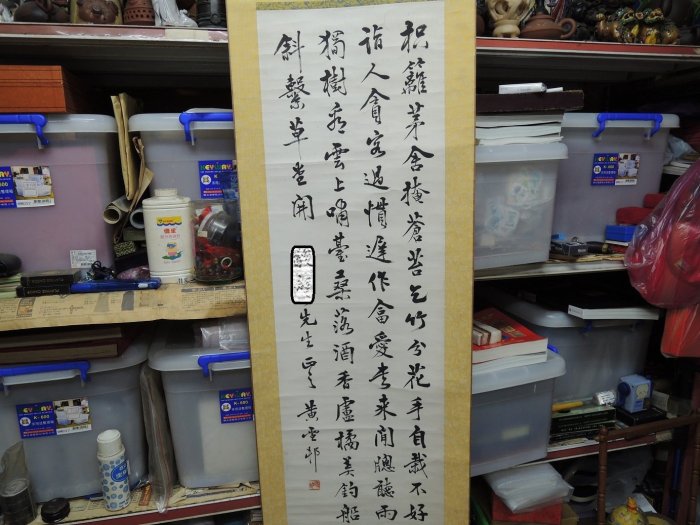 枳籬茅舍掩蒼苔乞竹分花手自栽不好
詣人貪客過慣遲作畣愛書來閒牕聽雨
獨樹看雲上嘯臺桑落酒香盧橘美釣船
斜繫草堂開
先生正之 黃雲邨
KEYWAY
K-800